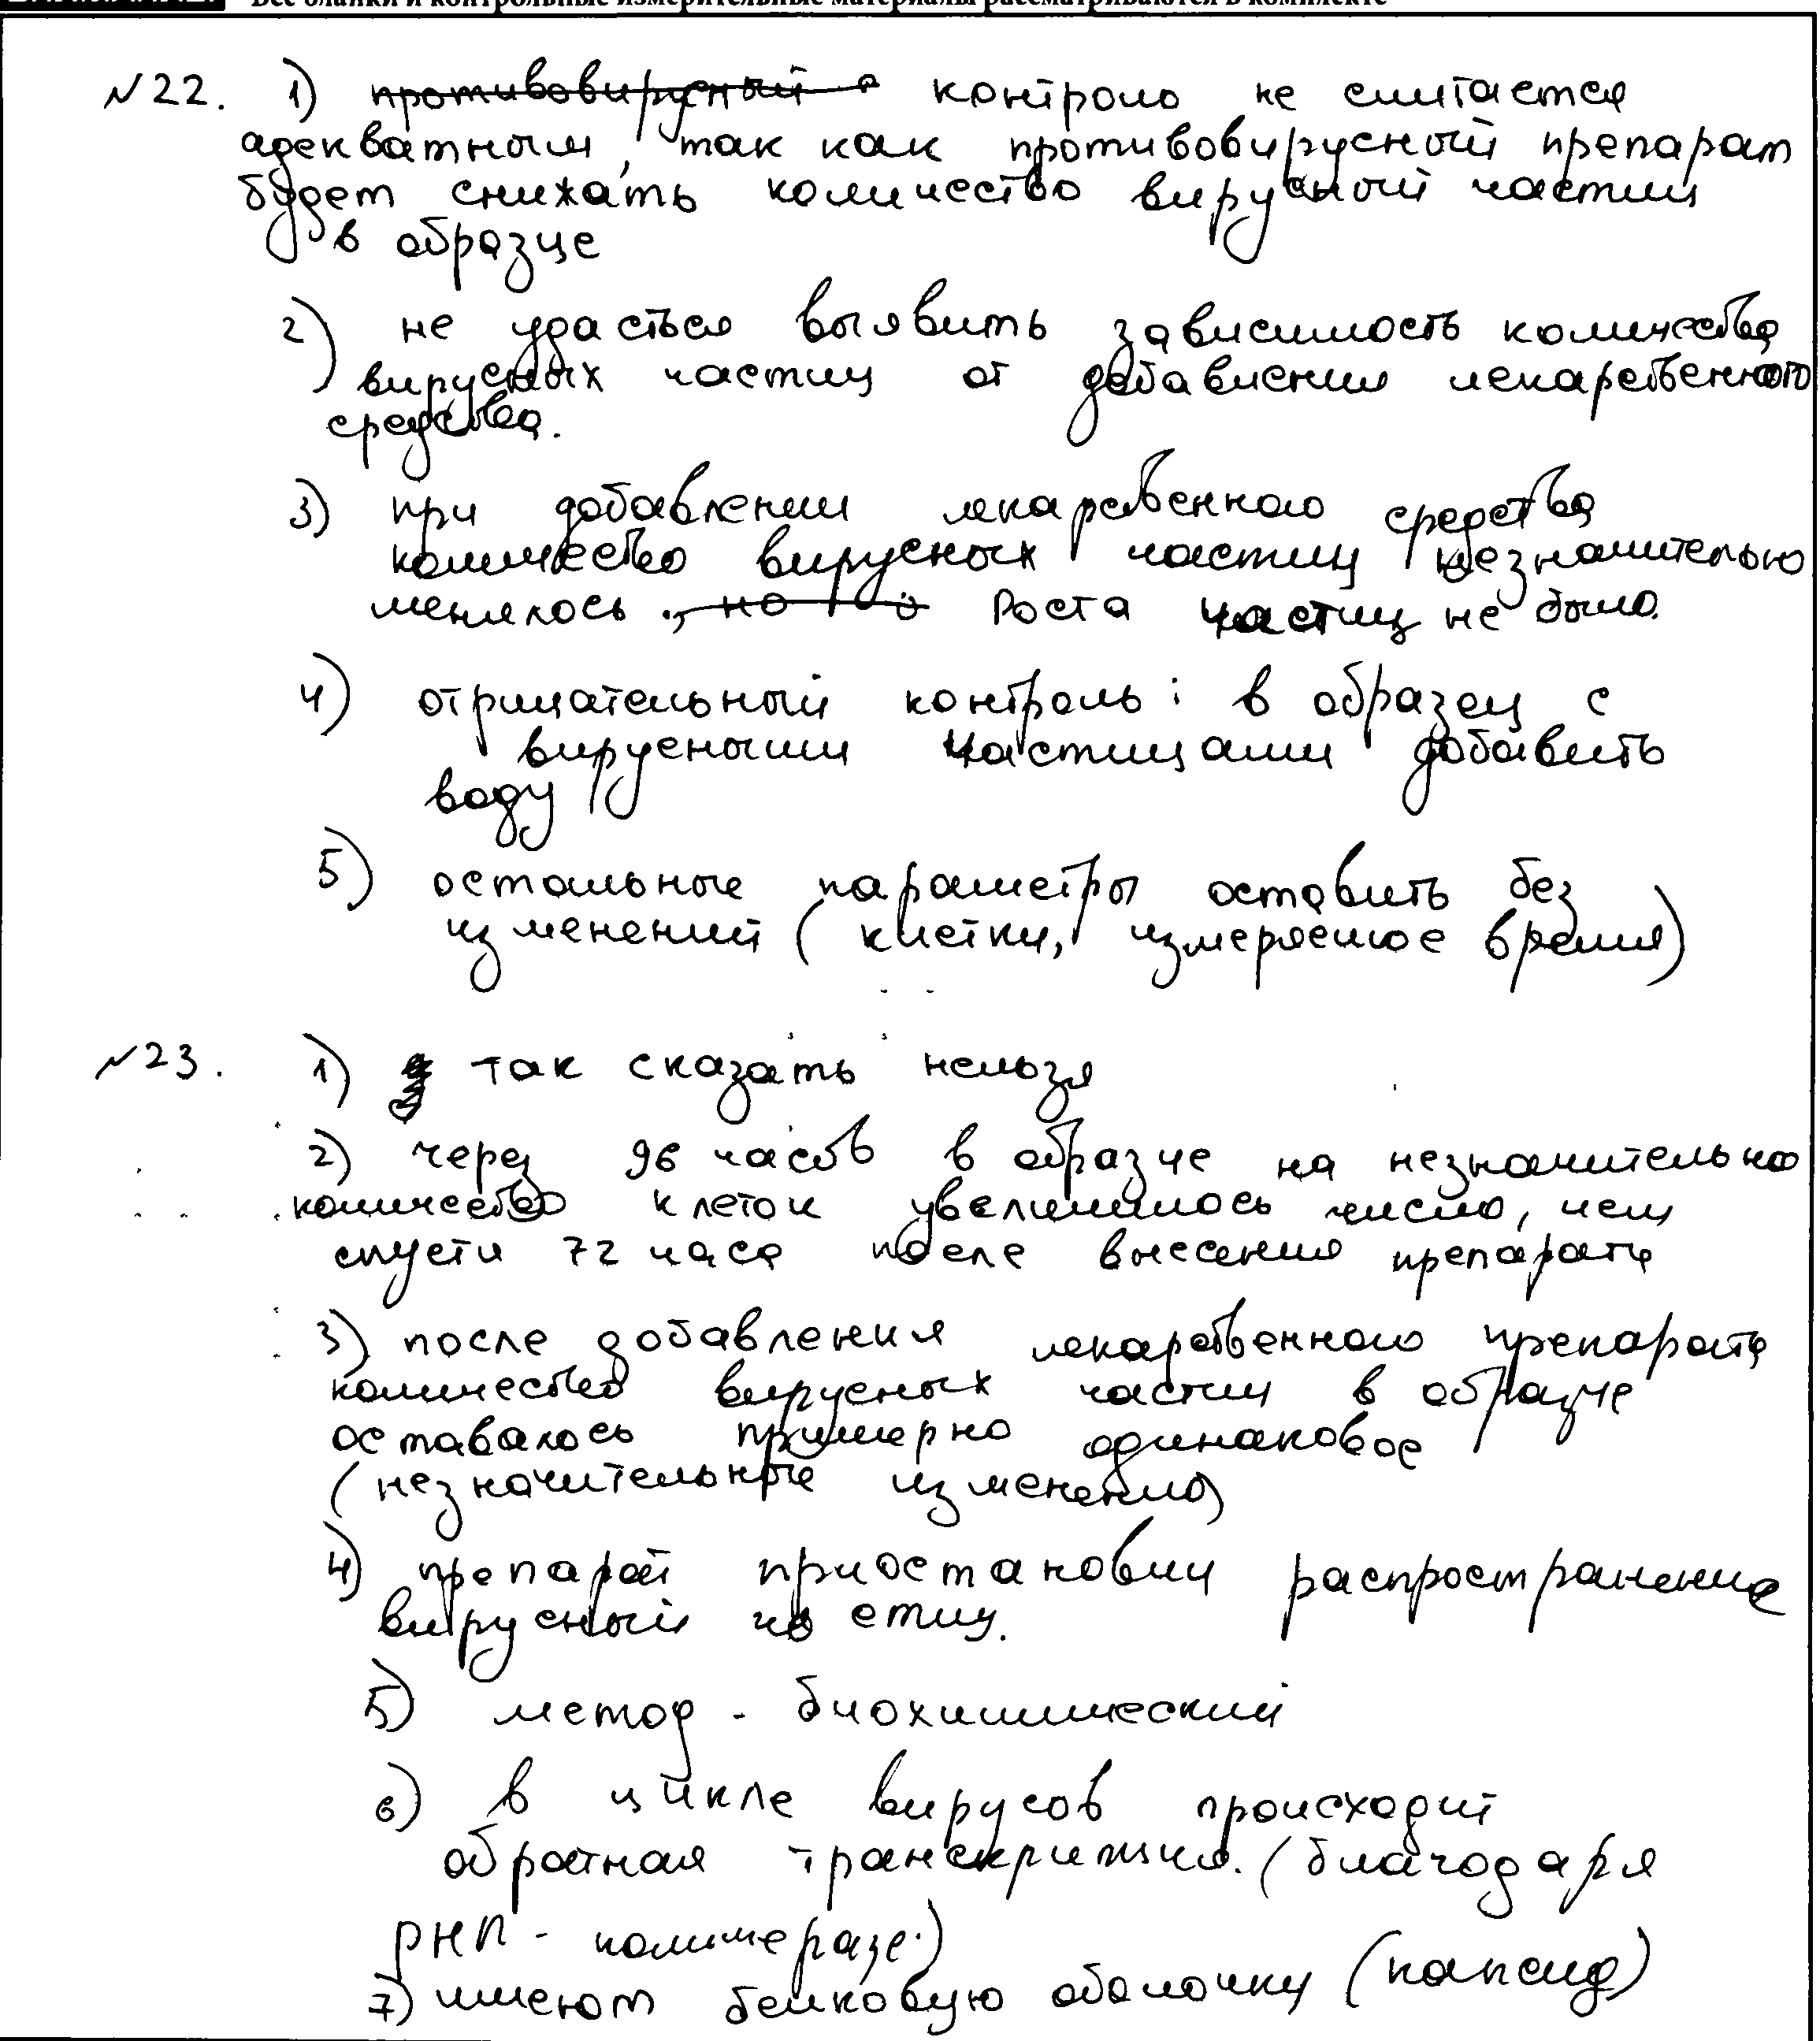 Все бланки и контрольные измерительные материалы рассматриваются в комплекте
№22. 1) противовирусный контроль не считается
адекватным, так как противовирусный препарат
будет снижать количество вирусный частиц
в образце
2) не удасться выявить зависимость количества
вирусных частиц от добавления лекарственного
средства.
3) при добавлении лекарственного средства
количество вирусных частиц незначительно
менялось., но Роста частиц не было.
4) отрицательный контроль: в образец с
вирусными частицами добавить
воду
5) остальные параметры оставить без
изменений (клетки, измеряемое время)
№23. 1) так сказать нельзя
2) через 96 часов в образце на незначительно
количество клеток увеличилось число, чем
спустя 72 часа после внесения препарата
3) после добавления лекарственного препарата
количество вирусных частиц в образце
оставалось примерно одинаковое
(незначительные изменения)
4) препарат приостановил распространение
вирусный частиц.
5) метод - биохимический
6) в цикле вирусов происходит
обратная транскрипция. (благодаря
РНП - полимеразе.)
7) имеют белковую оболочку (капсид)